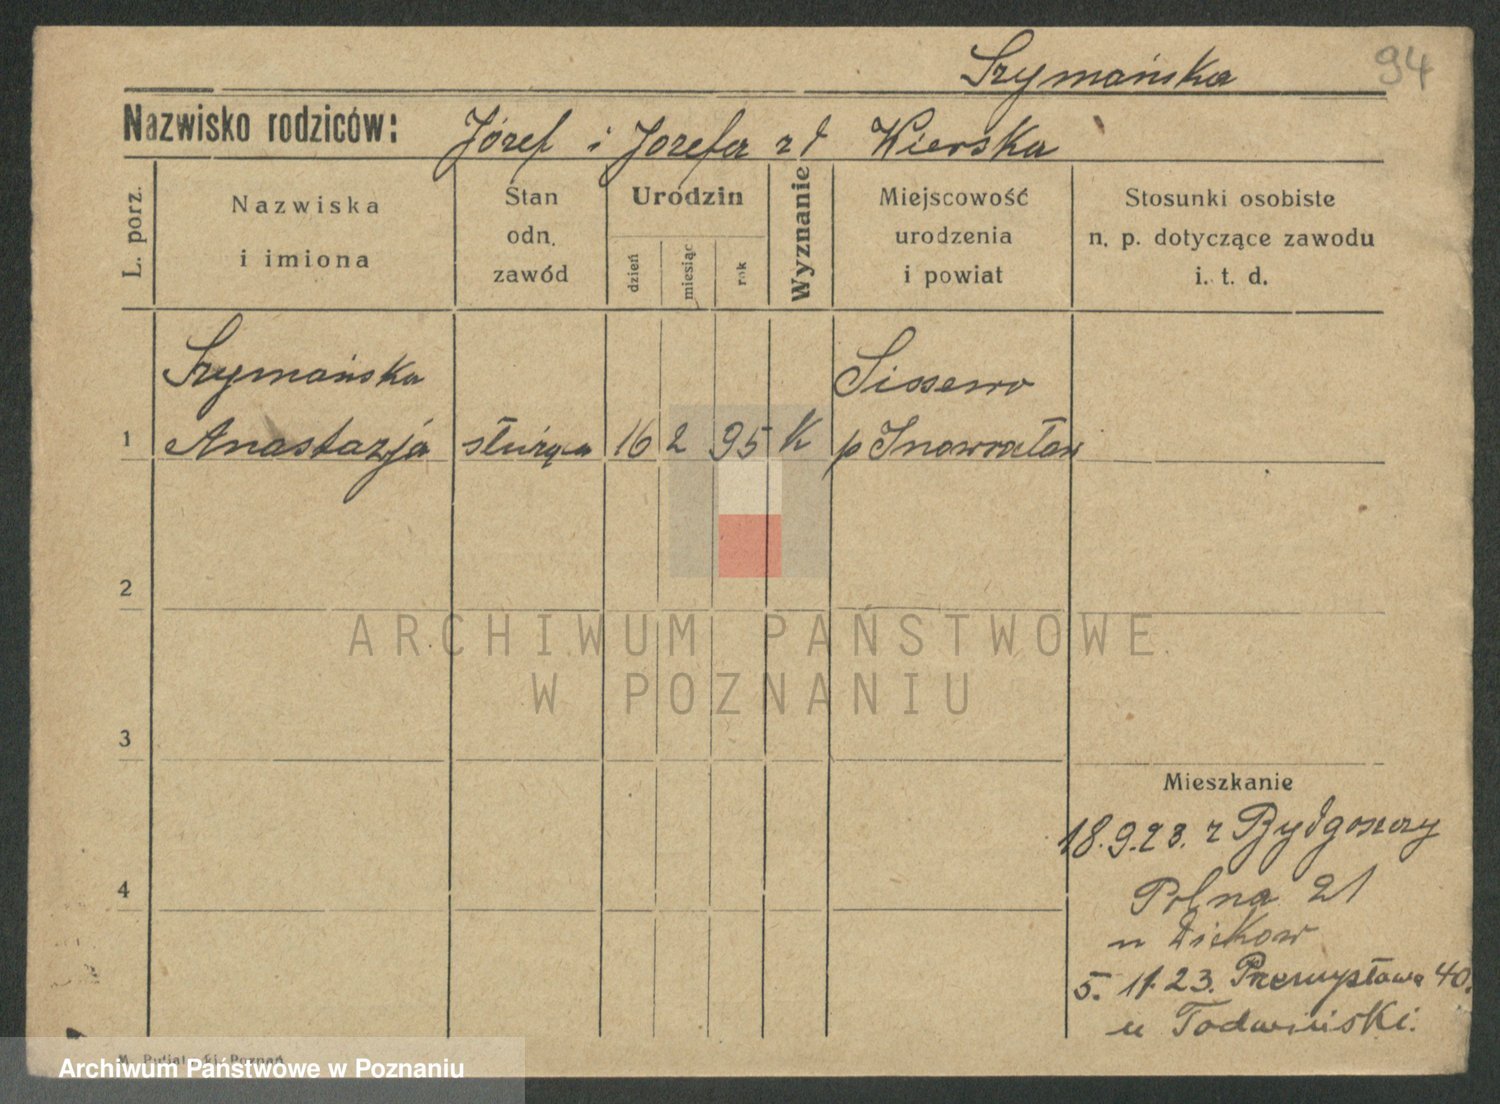 Szymańska
94
Nazwisko rodziców: Józef i Jozefa zd Wierska
L. porz.
Nazwiska
i imiona
Stan
odn.
zawód
Urodzin
dzień
miesiąc
rok
Wyznanie
Miejscowość
urodzenia
i powiat
Stosunki osobiste
n. p. dotyczące zawodu
i. t. d.
Szymańska Sissewo
1 Anastazja służąca 16 2 95 K p Inowrocław
2
ARCHIWUM PAŃSTWOWE
W POZNANIU
3
Mieszkanie
18.9.23. z Bydgoszczy
4
Polna 21
u
5. 11. 23. Przemysława 40.
u
Poznań
Archiwum Państwowe w Poznaniu